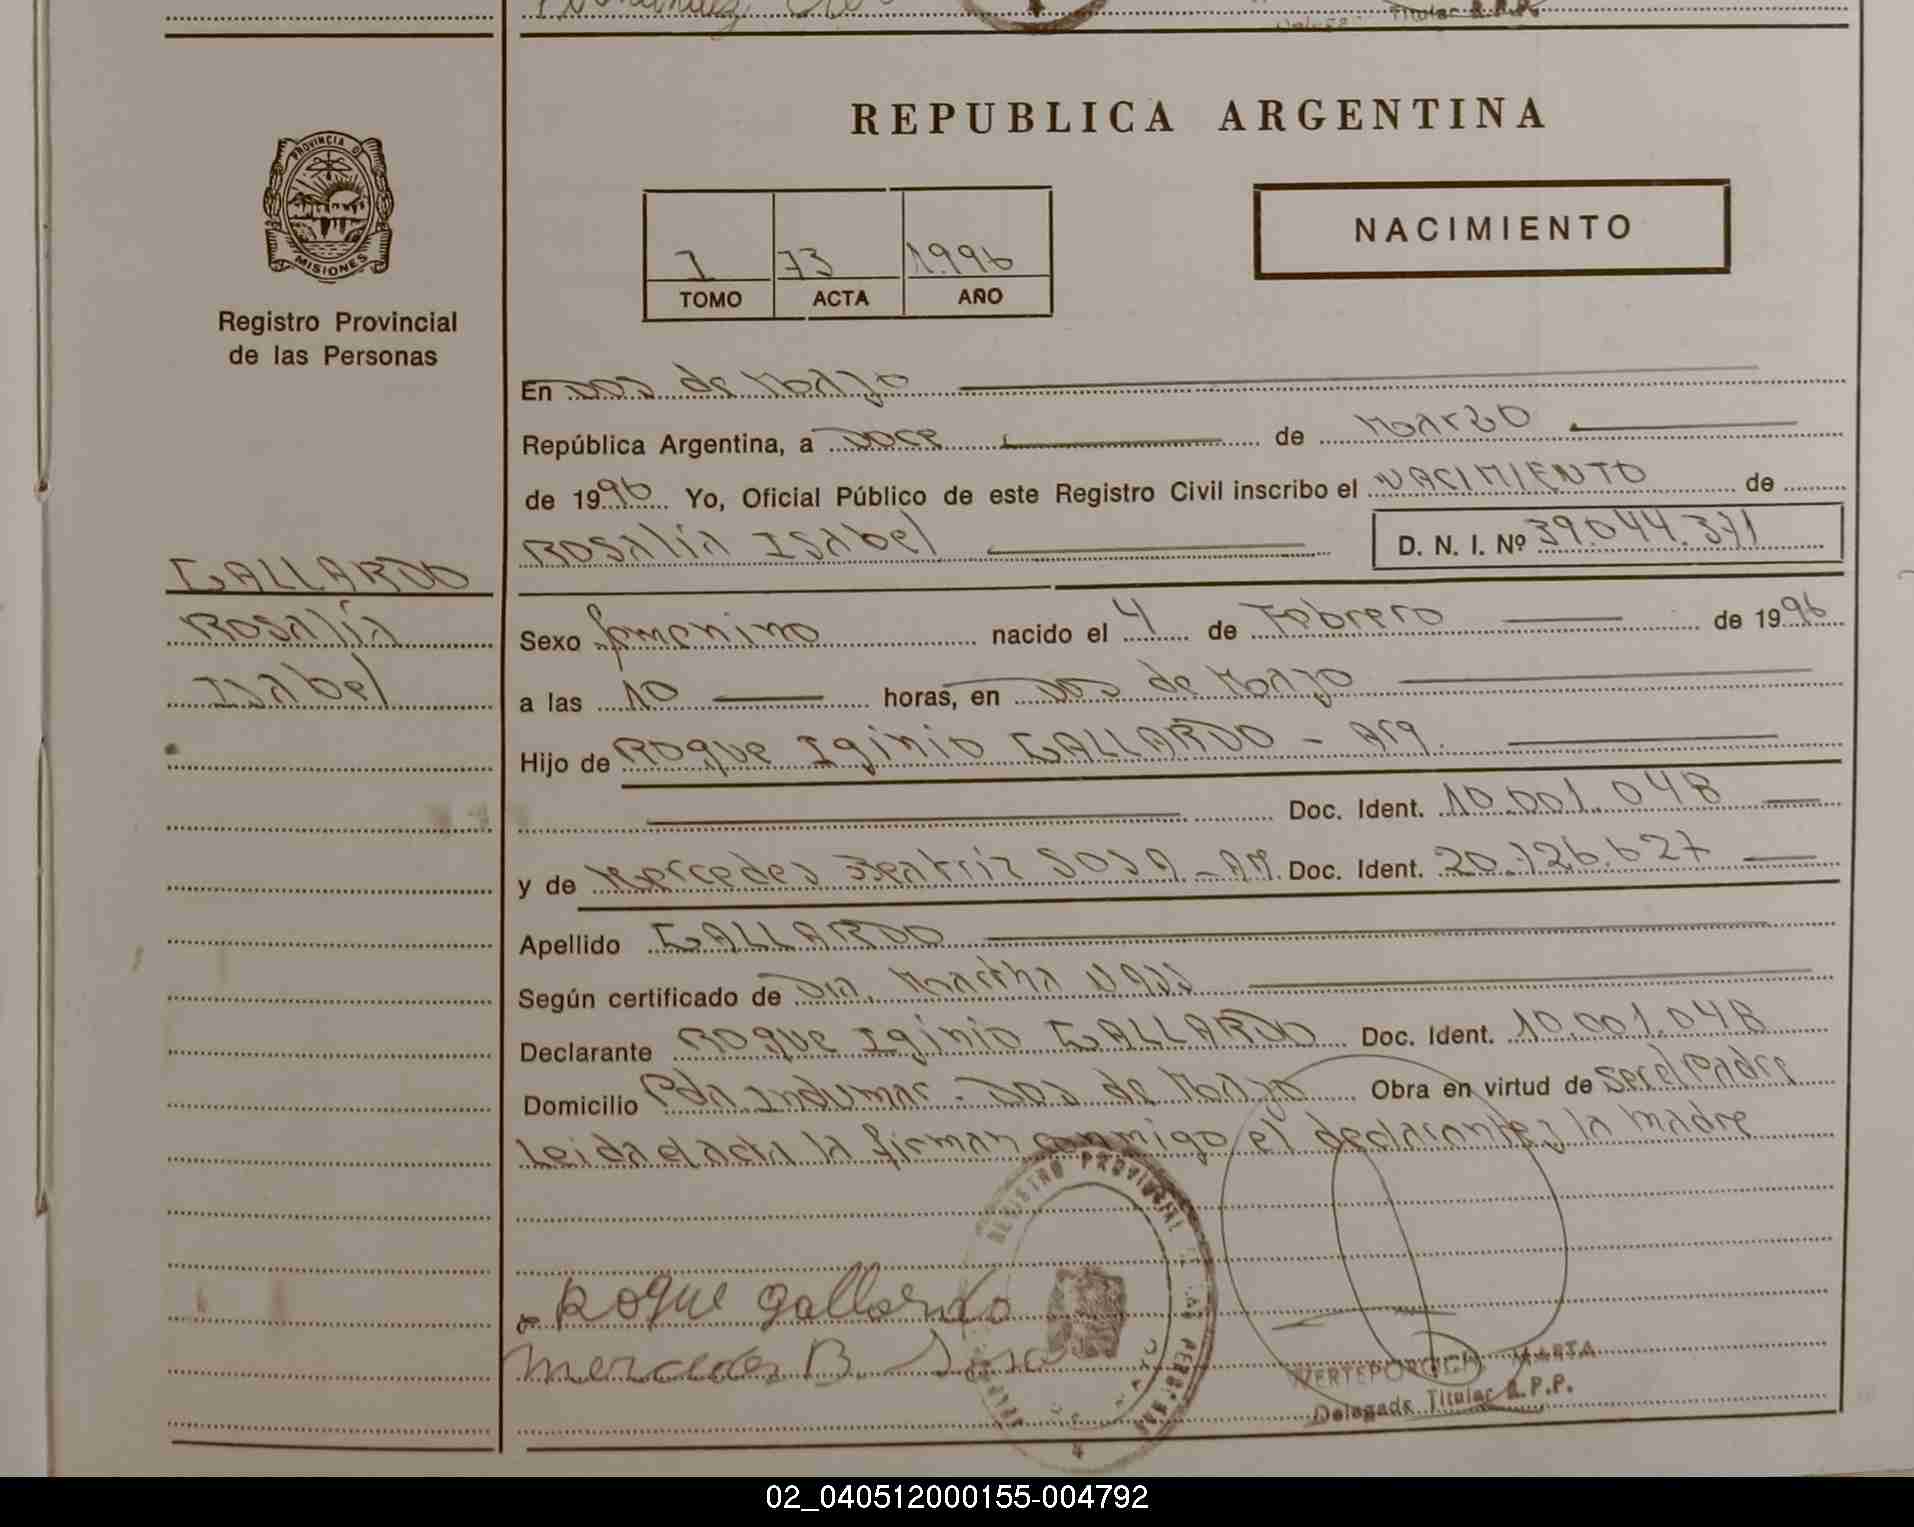 Titular R.P.P.
REPUBLICA ARGENTINA
PROVINCIA D
MISIONES
Registro Provincial
de las Personas
NACIMIENTO
I 73 1996
TOMO ACTA AÑO
En Dos de Mayo
República Argentina, a Doce de Marzo
de 1996 Yo, Oficial Público de este Registro Civil inscribo el NACIMIENTO de
Rosalía Isabel D. N. I. Nº 39.044.371
GALLARDO
Rosalía
Isabel
Sexo femenino nacido el 4 de Febrero de 1996
a las 10 horas, en Dos de Mayo
Hijo de Roque Iginio GALLARDO - Arg.
Doc. Ident. 10.001.048
y de Mercedes Beatriz SOSA - Doc. Ident. 20.126.627
Apellido GALLARDO
Según certificado de Dra. Martha
Declarante Roque Iginio GALLARDO Doc. Ident. 10.001.048
Domicilio Pda Indumar - Dos de Mayo Obra en virtud de ser el Padre
Leida el acta la firman conmigo el declarante y la madre
REGISTRO PROVINCIAL DE LAS PERSONAS
Roque Gallardo
Mercedes B. Sosa
MARTA
Delegada Titular R.P.P.
02_040512000155-004792